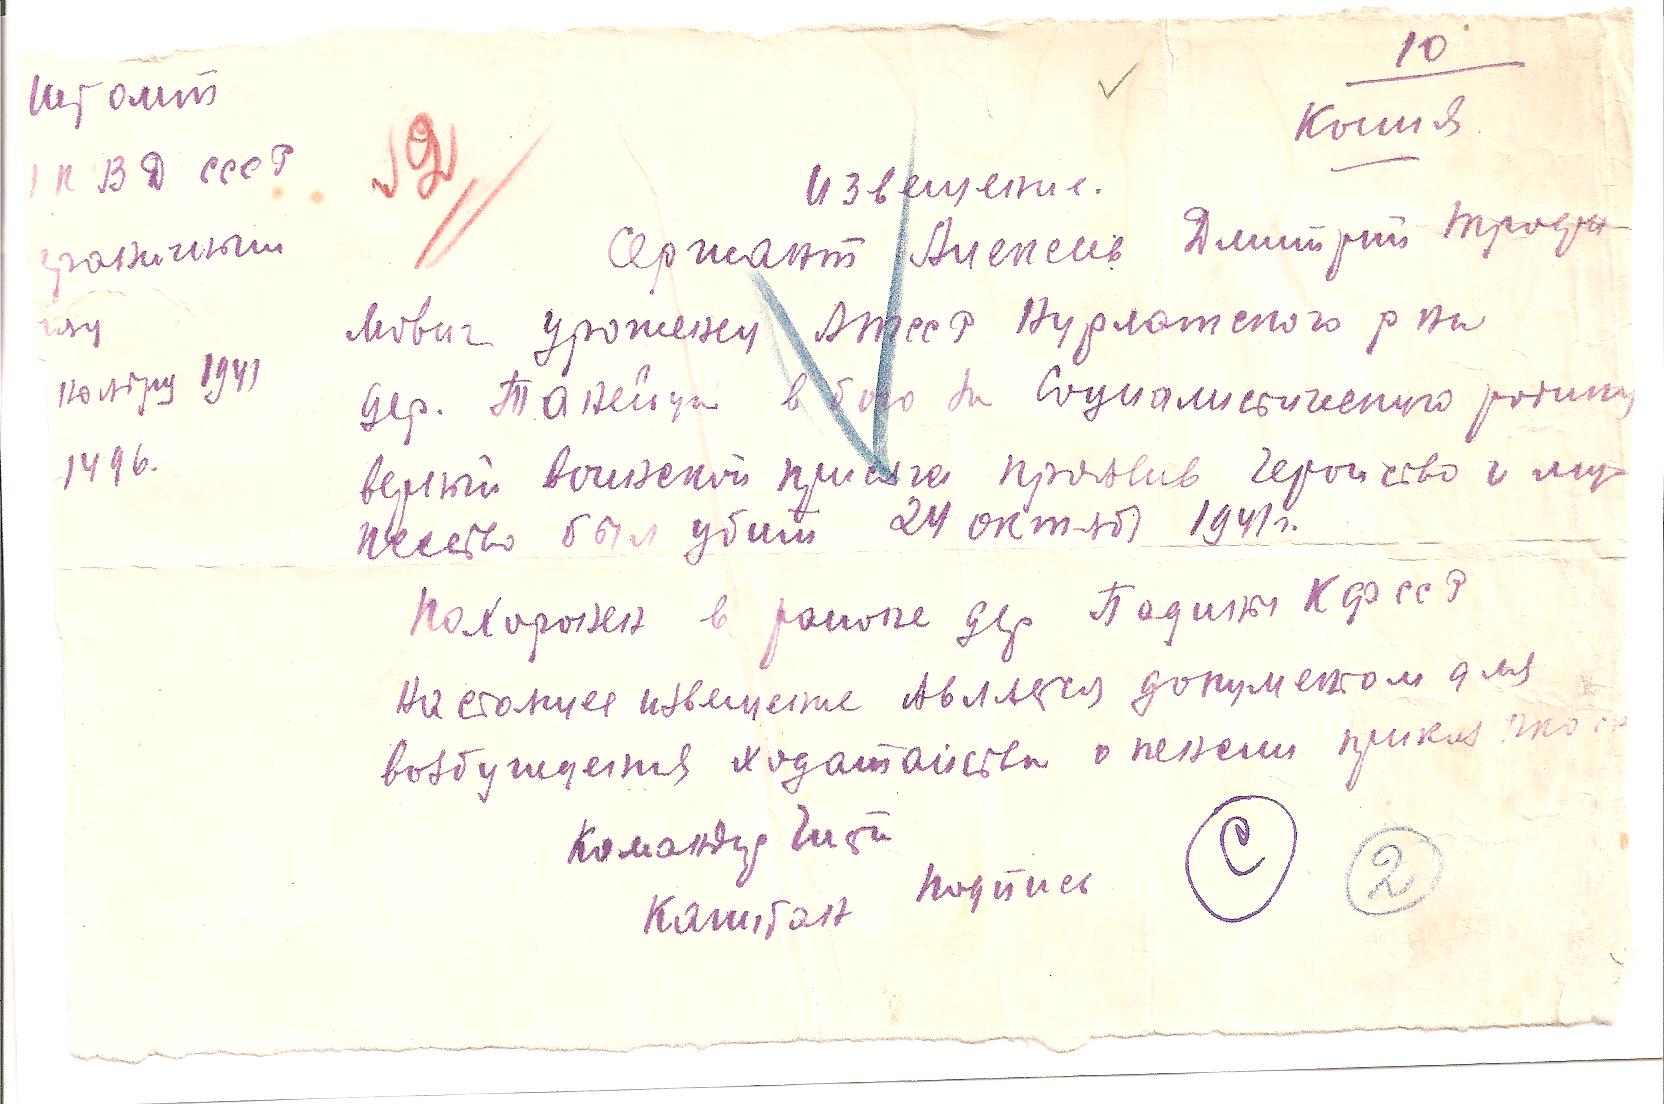 10
Копия
Штамп
НКВД СССР
пограничный
ноября 1941
1496.
Извещение.
Сержант Алексеев Дмитрий Трофи-
мович уроженец АТССР Нурлатского р на
дер. в бою за Социалистическую родину
верный воинской присяге проявив геройство и му-
жество был убит 24 октяб 1941 г.
Похоронен в районе дер Падины КФССР
Настоящее извещение является документом для
возбуждения ходатайства о пенсии приказ НКО
Командир части
Капитан подпись
С
2